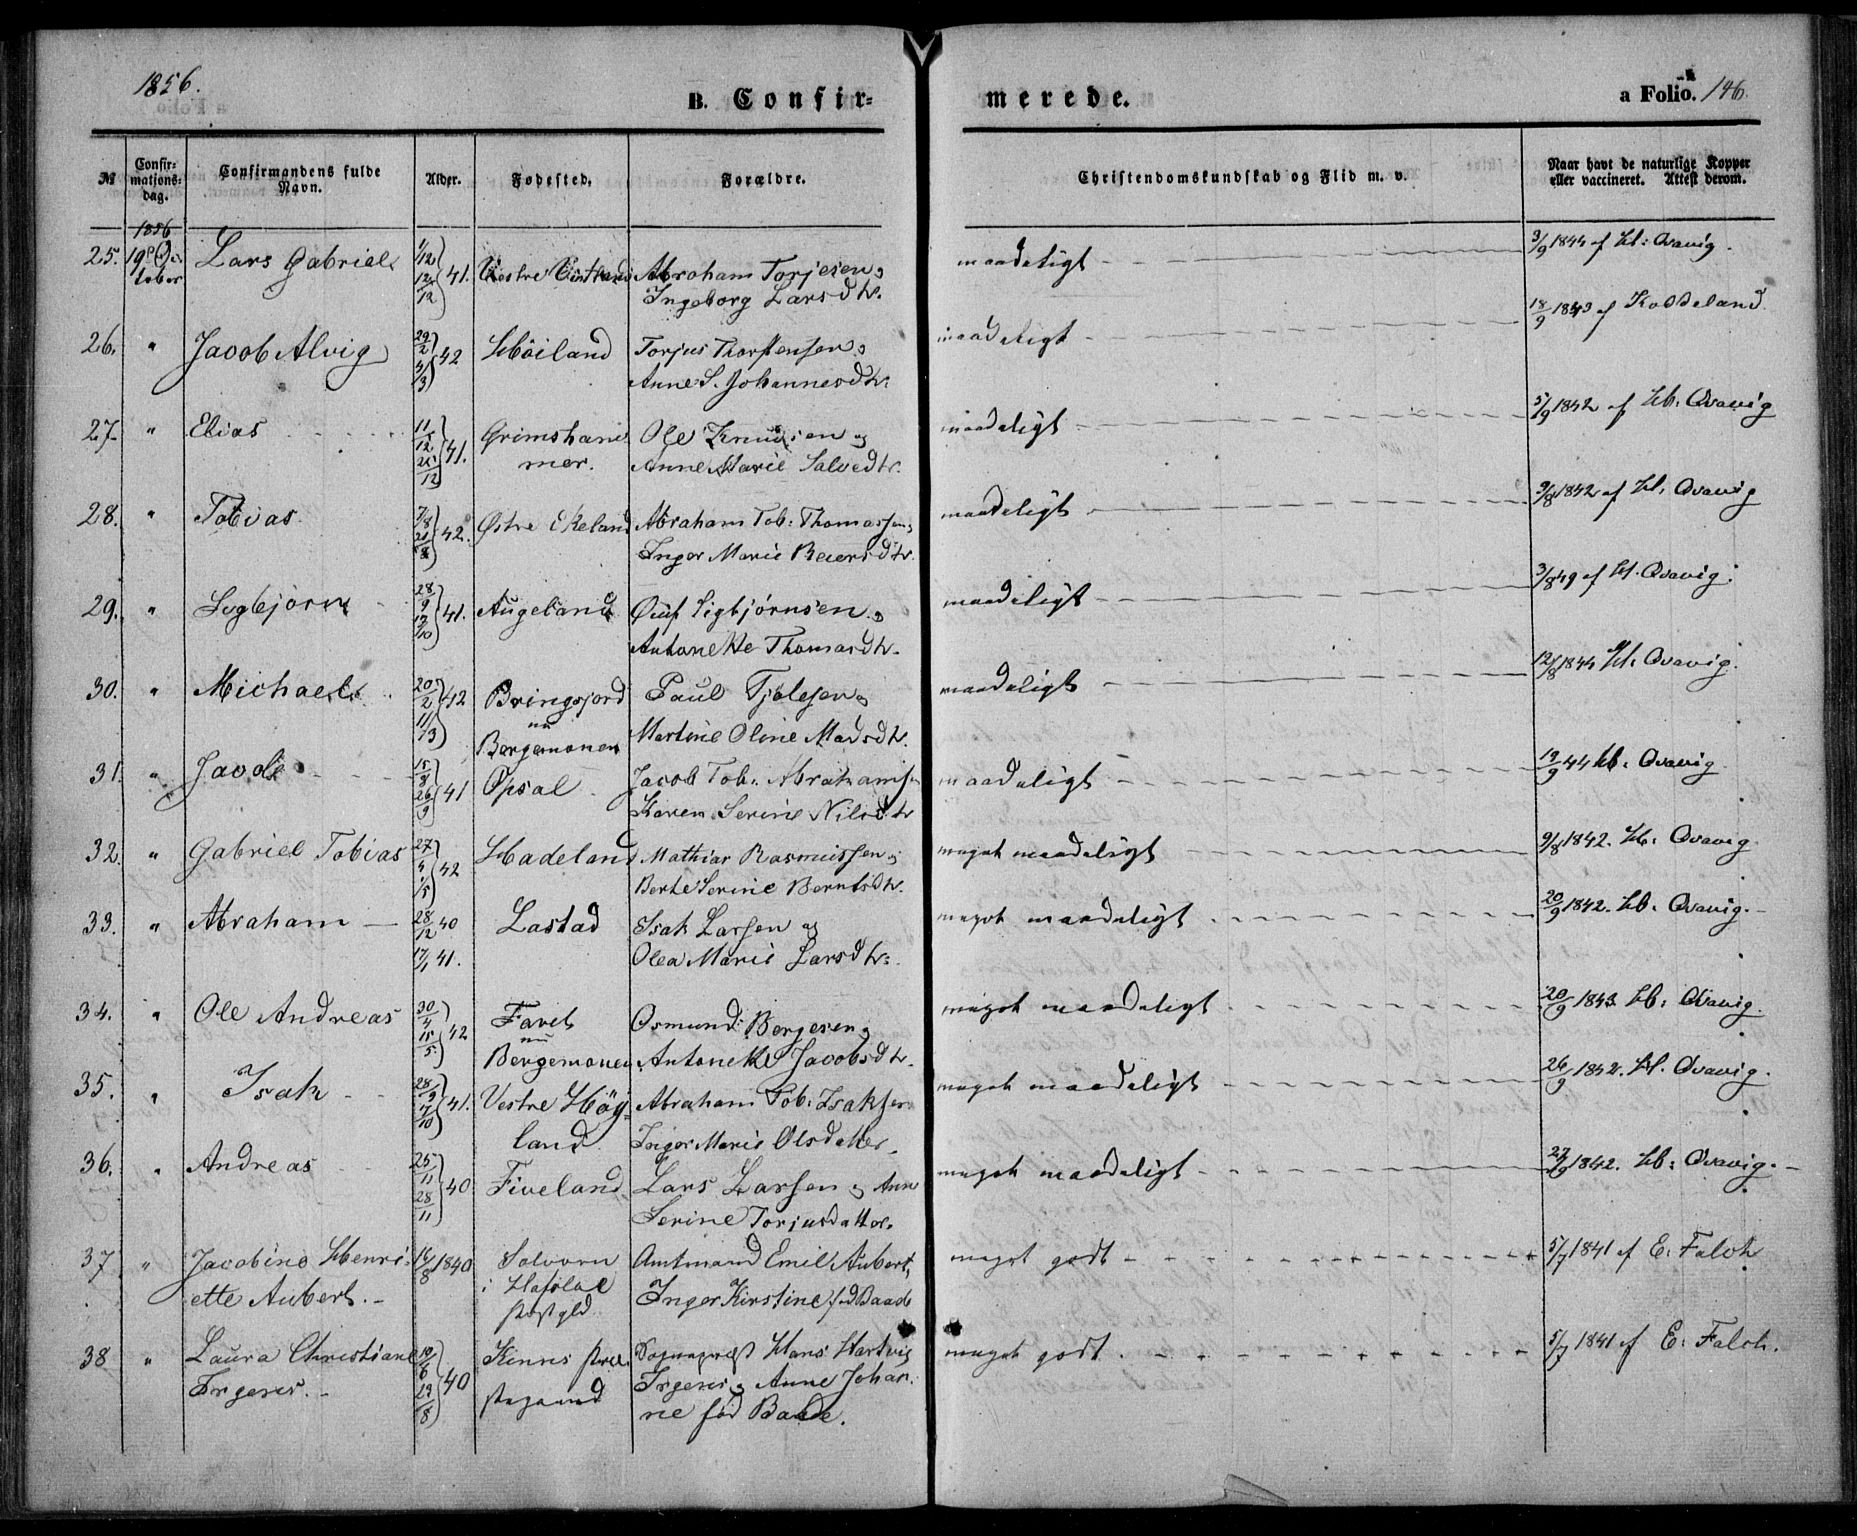 1856.
B. Confir= merede. a Folio. 146.
№ Confir=mations=dag. Confirmandens fulde Navn. Alder. Fødested. Forældre. Christendomskundskab og Flid m. v. Naar havt de naturlige Kopper eller vaccineret. Attest derom.
1856
25. 19de Oc Lars Gabriel 1/12 Vestre Abraham Torjesen og maadeligt 3/9 1844 af Hl: Qvavig.
tober 12/12 41. Ingeborg Larsdtr.
26. " Jacob Alvig 29/2 42 Höiland Torjus Thorstensen og maadeligt 18/9 1843 af Koddeland
4/3 Anne S. Johannesdtr.
27. " Elias 11/12 41. Grimsham Ole Knudsen og maadeligt 5/9 1842 af Hb: Qvavig
25/12 mer. Anne Marie Salvedtr.
28. " Tobias 7/8 42. Østre Ekeland Abraham Tob: Thomassen og maadeligt 3/8 1842 af Hl: Qvavig
21/8 Inger Marie Reiersdtr.
29. " Sigbjörn 28/9 41. Augeland Oluf Sigbjörnsen og maadeligt 3/8 49 af Hl. Qvavig.
17/10 Antonette Thomasdtr.
30. " Michael 20/2 42 Bringsjord Paul Tjölsen og maadeligt 12/8 1844 Hl: Qvavig.
11/3 nu Martine Oline Madsdtr.
Bergemonen
31. " Jacob 15/9 41 Opsal Jacob Tob: Abrahamsen maadeligt 19/9 44 Hb: Qvavig
26/9 Karen Serine Nilsdtr
32. " Gabriel Tobias 27/4 42 Hadeland Mathias Rasmussen og meget maadeligt 9/8 1842. Hb: Qvavig
1/5 Berte Serine Berntsdtr.
33. " Abraham 28/12 40 Lastad Isak Larsen og meget maadeligt 20/9 1842. Hb: Qvavig.
17/1 41. Olea Marie Larsdtr:
34. " Ole Andreas 30/4 42 Faret Osmund Bergesen og meget maadeligt 20/9 1843. Hb: Qvavig.
15/5 nu
Bergemonen Antonette Jacobsdtr.
35. " Isak 28/9 41. Vestre Höy Abraham Tob: Isaksen meget maadeligt 26/9 1842. Hl. Qvavig.
17/10 land Inger Marie Olsdatter.
36. " Andreas 25/11 40 Fiveland Lars Larsen og Ane meget maadeligt 27/9 1842. Hb: Qvavig.
28/11 Serine Torjusdatter.
37 " Jacobine Henri 16/8 1840 Solvorn Amtmand Emil Aubert, meget godt 5/7 1841 af E: Falch
ette Aubert. i Hafsloe Inger Kirstine fød Baade
Præstgld
38 " Laura Christiane 10/6 40 Kinns Præ Sognepræst Hans Hartvig meget godt 5/7 1841 af E: Falch.
Irgens. 29/8 stegaard Irgens og Anne Johan
ne fød Baade.